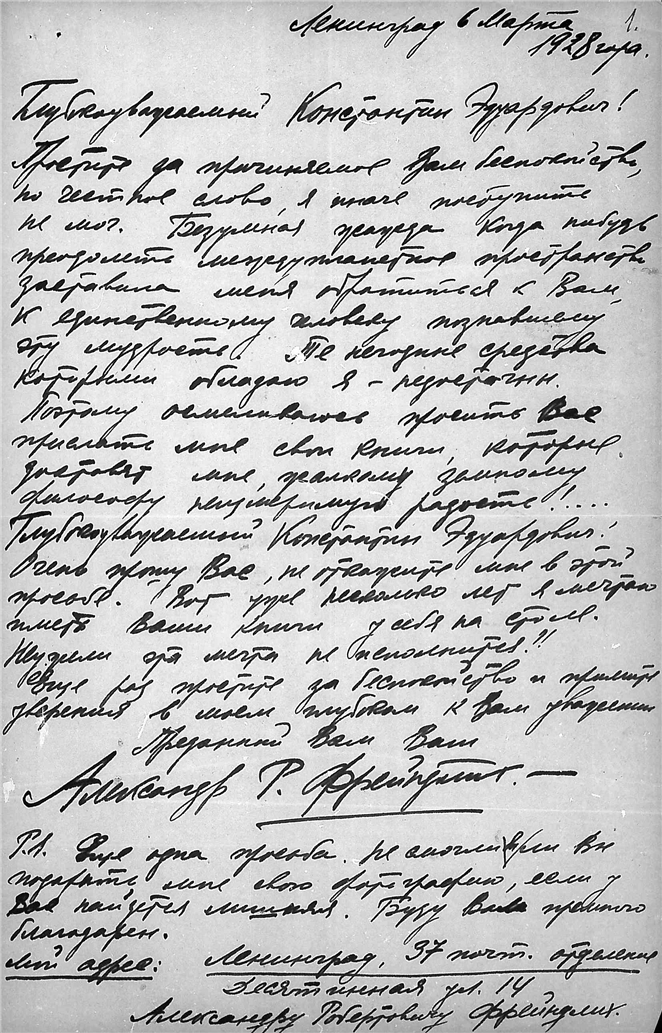 1.
Ленинград 6 Марта
1928 года.
Глубокоуважаемый Константин Эдуардович!
Простите за причиняемое Вам беспокойство,
но честное слово, я иначе поступить
не мог. Безумная жажда когда нибудь
преодолеть междупланетное пространство
заставила меня обратиться к Вам,
к единственному человеку познавшему
эту мудрость. Те негодные средства
которыми обладаю я – недостаточны.
Поэтому осмеливаюсь просить Вас
прислать мне свои книги, которые
доставят мне, жалкому земному
философу неизмеримую радость!.....
Глубокоуважаемый Константин Эдуардович!
Очень прошу Вас, не откажите мне в этой
просьбе. Вот уже несколько лет я мечтаю
иметь Ваши книги у себя на столе.
Неужели эта мечта не исполнится!!
Еще раз простите за беспокойство и примите
уверения в моем глубоком к Вам уважении
Преданный Вам Ваш
Александр Р. Фрейндлих. —
P.S. Еще одна просьба. Не смогли ли Вы
подарить мне свою фотографию, если у
Вас найдется лишняя. Буду Вам премного
благодарен.
Мой адрес: Ленинград, 37 почт. отделение
Десятинная ул. 14
Александру Робертовичу Фрейндлих.